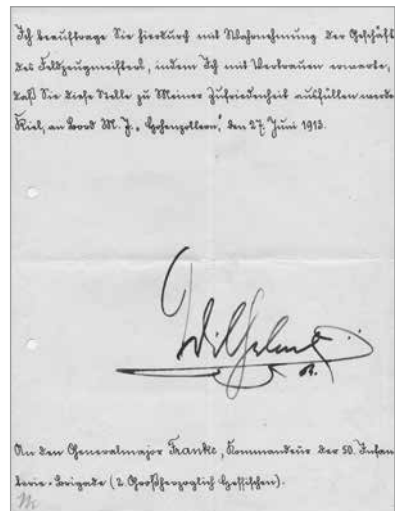 Ich beauftrage Sie hierdurch mit Wahrnehmung der Geschäft
des Feldzeugmeisters, indem Ich mit Vertrauen erwarte,
daß Sie diese Stelle zu Meiner Zufriedenheit ausfüllen werde
Kiel, an Bord M. J. „Hohenzollern", den 27. Juni 1913.
Wilhelm
R.
An den Generalmajor Franke, Kommandeur der 50. Infan
terie-Brigade (2. Großherzoglich Hessischen).